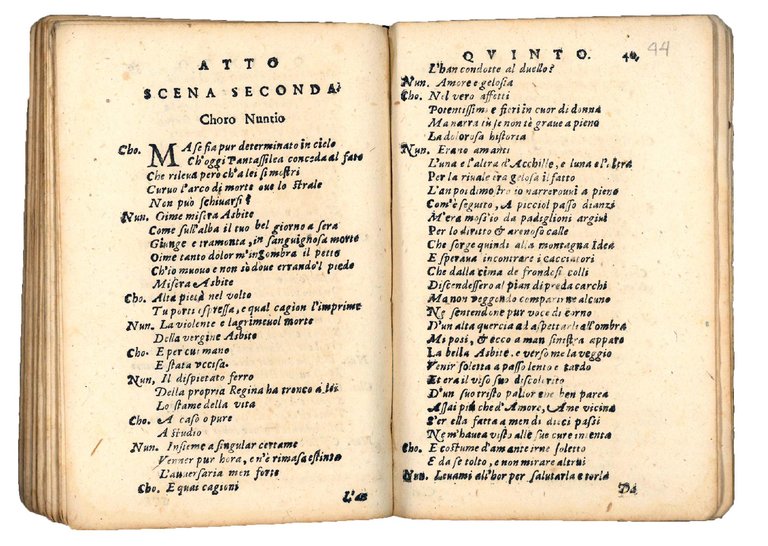 ATTO
SCENA SECONDA
Choro Nuntio
Cho. MA se fia pur determinato in cielo
Ch'oggi Pantassilea conceda al fato
Che rileua però ch'a lei si mostri
Curuo l'arco di morte oue lo strale
Non può schiuarsi?
Nun. Oime misera Asbite
Come sull'alba il tuo bel giorno a sera
Giunge e tramonta, in sanguignosa morte
Oime tanto dolor m'ingombra il petto
Ch'io muouo e non sò doue errando'l piede
Misera Asbite
Cho. Alta pietà nel volto
Tu porti espressa, e qual cagion l'imprime
Nun. La violente e lagrimeuol morte
Della vergine Asbite
Cho. E per cui mano
E stata vccisa.
Nun. Il dispietato ferro
Della propria Regina ha tronco a lei
Lo stame della vita
Cho. A caso o pure
A studio
Nun. Insieme a singular certame
Venner pur hora, e n'è rimasa estinta
L'auuersaria men forte
Cho. E quai cagioni
L'an
QVINTO. 40 44
L'han condotte al duello?
Nun. Amore e gelosia
Cho. Nel vero affetti
Potentissimi e fieri in cuor di donna
Ma narra tù se non t'è graue a pieno
La dolorosa historia
Nun. Erano amanti
L'una e l'altra d'Acchille, e l'una e l'altra
Per la riuale era gelosa il fatto
L'an poi dimostro io narrerouui a pieno
Com'è seguito, A picciol passo dianzi
M'era moss'io da padiglioni argiui
Per lo diritto & arenoso calle
Che sorge quindi alla montagna Idea
E speraua incontrare i cacciatori
Che dalla cima de frondosi colli
Discendessero al pian di preda carchi
Ma non veggendo comparirne alcuno
Ne sentendone pur voce di corno
D'un alta quercia ad aspettarli all'ombra
Mi posi, & ecco a man sinistra apparo
La bella Asbite. e verso me la veggio
Venir soletta a passo lento e tardo
Et era il viso suo discolorito
D'un suo tristo pallor che ben parea
Assai più che d'Amore, A me vicina
S'er ella fatta a men di dieci passi
Ne m'hauea visto alle sue cure intenta
Cho. E costume d'amante irne soletto
E da se tolto, e non mirare altrui
Nun. Leuami all'hor per salutarla e torla
Da